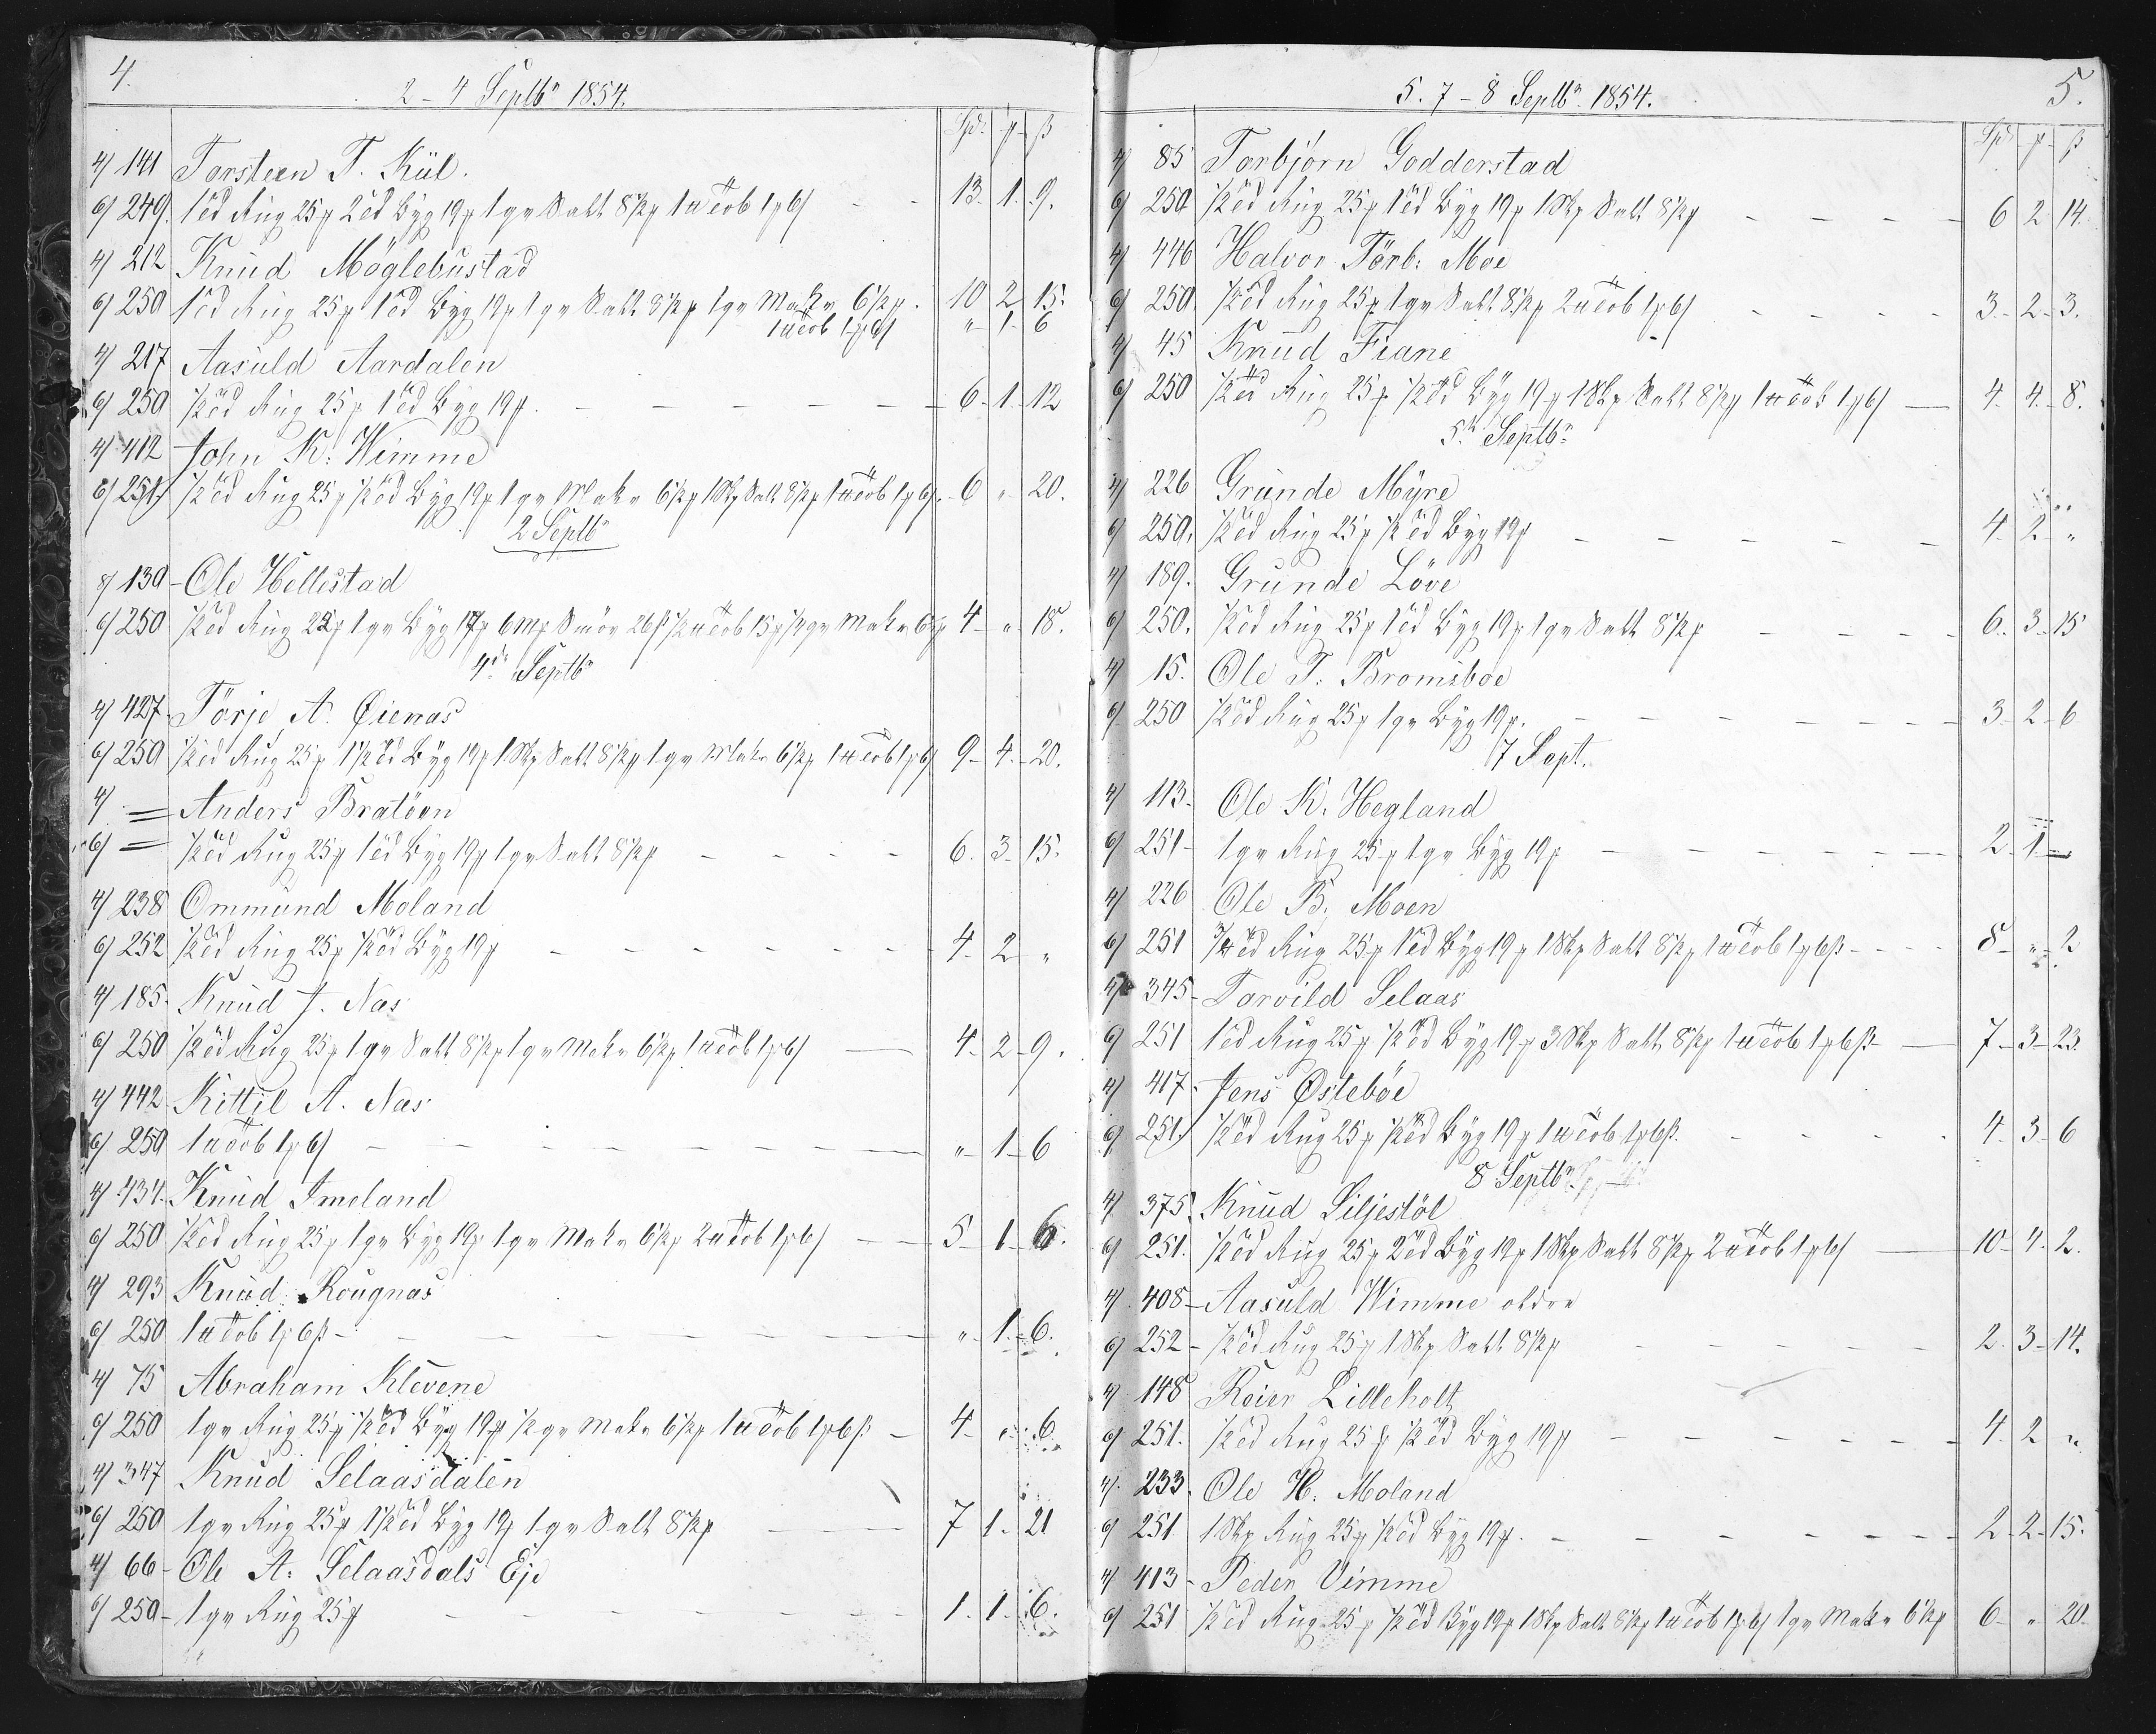 4.
2 - 4 Septbr 1854.
Spd. ℳ ß
4/ 141 Torsteen T. Kiil.
6/ 249. 1 td Rug 25 2 td Byg 19 1 qr Salt 8½ 1 ℔ Tob 1 6/ - - 13. 1. 9.
4/ 212 Knud Møglebustad
6/ 250 1 td Rug 25 1 td Byg 19 1 qr Salt 8½ 1 qr Makr 6½ . 10 2 15.
1 ℔ Tob 1 6/ " 1 6
4/ 217 Aasuld Aardalen
6/ 250 ½ td Rug 25 1 td Byg 19 . - - - - - 6. 1. 12
4/ 412 John K: Wimme
6/ 251. ½ td Rug 25 ½ td Byg 19 1 qr Makr 6½ 1 Skp Salt 8½ 1 ℔ Tob 1 6/. 6 " 20.
2 Septbr
8/ 130 - Ole Hellestad
6/ 250 ½ td Rug 22 1 qr Byg 17 6 mp Smør 26 ß ½ ℔ Tob 15 ½ qr Makr 6 4 - " 18.
4de Septbr
4/ 427 Törje A. Øienas
6/ 250 ½ td Rug 25 1½ td Byg 19 1 Skp Salt 8½ 1 qr Makr 6½ 1 ℔ Tob 1 6/ 9 - 4. - 20.
4/ = Anders Bratøen
6/ = ½ td Rug 25 1 td Byg 19 1 qr Salt 8½ - - - - 6. 3 - 15.
4/ 238 Ommund Moland
6/ 252 ½ td Rug 25 ½ td Byg 19 - - - - - - 4 - 2 - "
4/ 185 - Knud J. Nas
6/ 250 ½ td Rug 25 1 qr Salt 8½ 1 qr Makr 6½ 1 ℔ Tob 1 6/ — 4 - 2 - 9.
4/ 442 Kittil A. Nas
6/ 250 1 ℔ Tob 1 6/ - - - - - - - " - 1 - 6
4/ 434. Knud Imeland
6/ 250 ½ td Rug 25 1 qr Byg 19 1 qr Makr 6½ 2 ℔ Tob 1 6/ — 5 - 1 - 6.
4/ 293 Knud Rougnas
6/ 250 1 ℔ Tob 1 6 ß - - - - - - - " - 1. - 6.
4/ 75 Abraham Klevene
6/ 250 1 qr Rug 25 ½ td Byg 19 ½ qr Makr 6½ 1 ℔ Tob 1 6 ß - 4 - " . 6.
4/ 347 Knud Selaasdalen
6/ 250 1 qr Rug 25 1½ td Byg 19 1 qr Salt 8½ — — 7 1. 21
4/ 66 - Ole A: Selaasdals Eje
6/ 250 - 1 qr Rug 25 - - - - - - 1. 1. 6.
5.
5. 7 - 8 Septbr 1854.
Spd ℳ ß
4/ 85 Torbjørn Godderstad
6/ 250 ½ td Rug 25 1 td Byg 19 1 Skp Salt 8½ - - - - 6 2 14.
4/ 446 Halvor Törb: Moe
6/ 250. ½ td Rug 25 1 qr Salt 8½ 2 ℔ Tob 1 6/ - - - - 3. - 2 - 3.
4/ 45 Knud Fiane
6/ 250 ½ td Rug 25 ½ td Byg 19 1 Skp Salt 8½ 1 ℔ Tob 1 6/ — 4. 4. - 8.
5te Septbr
4/ 226 Grunde Myre
6/ 250. ½ td Rug 25 ½ td Byg 19 - - - - - 4 - 2 - "
4/ 189. Grunde Löve
6/ 250. ½ td Rug 25 1 td Byg 19 1 qr Salt 8½ - - - - 6. 3 - 15
4/ 15. Ole T. Bromsboe
6/ 250 ½ td Rug 25 1 qr Byg 19 . - - - - - - 3 - 2 - 6
7 Sept.
4/ 113 - Ole K. Hegland
6/ 251 - 1 qr Rug 25 1 qr Byg 19 - - - - - - 2 - 1 -
4/ 226 Ole B. Moen
6/ 251 ¾ td Rug 25 1 td Byg 19 1 Skp Salt 8½ 1 ℔ Tob 1 6 ß - - - 8 - " - 2
4/ 345 - Tarvild Selaas
6/ 251 1 td Rug 25 ½ td Byg 19 3 Skp Salt 8½ 1 ℔ Tob 1 6 ß — 7 - 3 - 23.
4/ 417 - Jens Østebøe
6/ 251. ½ td Rug 25 ½ td Byg 19 1 ℔ Tob 1 6 ß. - - - 4. 3 - 6
8 Septbr
4/ 375. Knud Siljestöl
6/ 251. ½ td Rug 25 2 td Byg 19 1 Skp Salt 8½ 2 ℔ Tob 1 6/ — 10 - 4. 2.
4/ 408 - Aasuld Wimme oldre
6/ 252 - ½ td Rug 25 1 Skp Salt 8½ - - - - 2. 3 - 14.
4/ 148 Reier Lilleholt
6/ 251. ½ td Rug 25 ½ td Byg 19 - - - - - - 4. 2 "
4/ 233. Ole H. Moland
6/ 251 1 Skp Rug 25 ½ td Byg 19 . - - - - - - 2 - 2 - 15.
4/ 413 - Peder Vimme
6/ 251 ½ td Rug 25 ½ td Byg 19 1 Skp Salt 8½ 1 ℔ Tob 1 6/ 1 qr Makr 6½ 6 - " - 20.